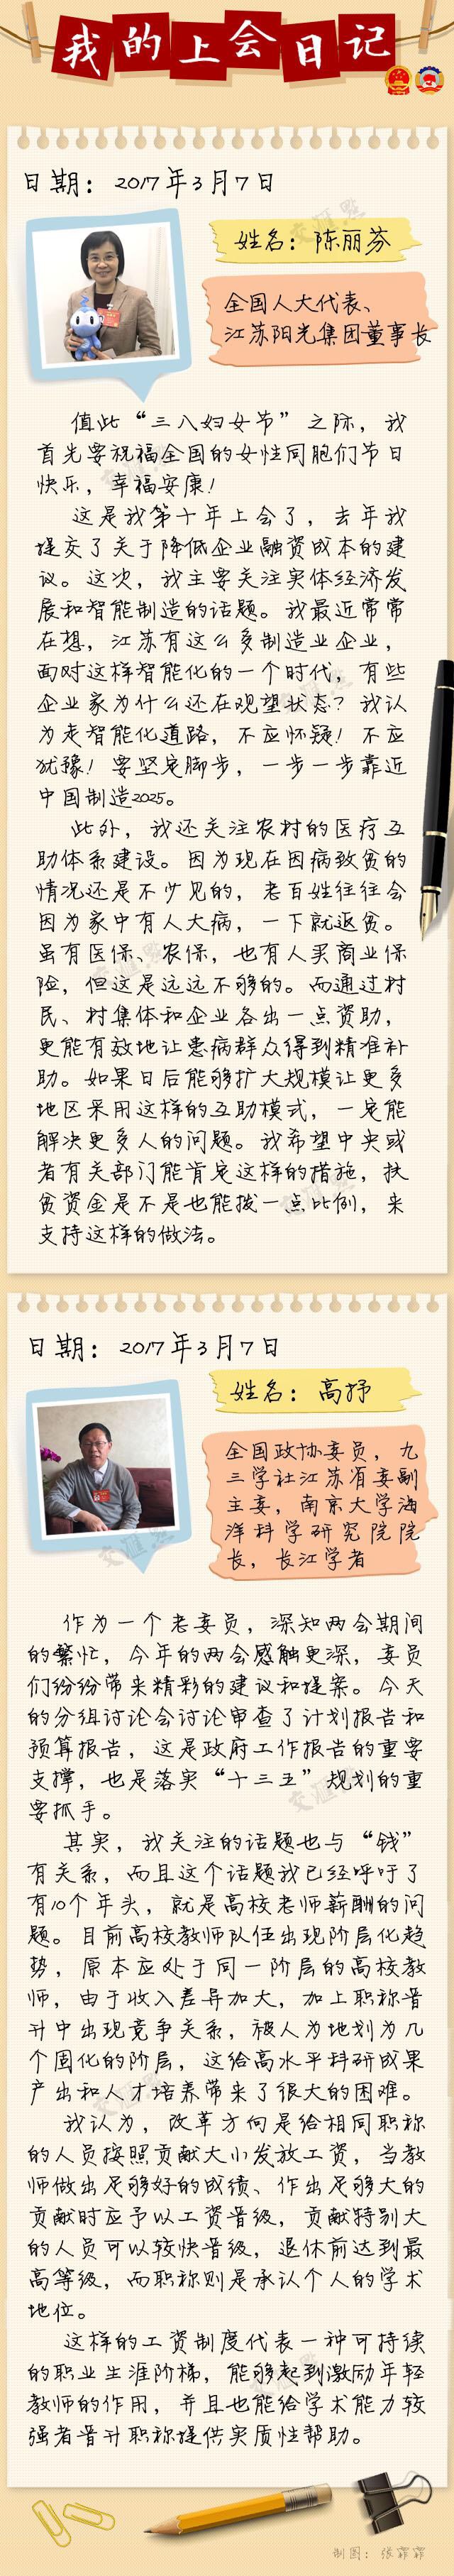 我的上会日记
日期：2017年3月7日
姓名：陈丽芬
全国人大代表、
江苏阳光集团董事长
值此“三八妇女节”之际，我
首先要祝福全国的女性同胞们节日
快乐，幸福安康！
这是我第十年上会了，去年我
提交了关于降低企业融资成本的建
议。这次，我主要关注实体经济发
展和智能制造的话题。我最近常常
在想，江苏有这么多制造业企业，
面对这样智能化的一个时代，有些
企业家为什么还在观望状态？我认
为走智能化道路，不应怀疑！不应
犹豫！要坚定脚步，一步一步靠近
中国制造2025。
此外，我还关注农村的医疗互
助体系建设。因为现在因病致贫的
情况还是不少见的，老百姓往往会
因为家中有人大病，一下就返贫。
虽有医保、农保，也有人买商业保
险，但这是远远不够的。而通过村
民、村集体和企业各出一点资助，
更能有效地让患病群众得到精准补
助。如果日后能够扩大规模让更多
地区采用这样的互助模式，一定能
解决更多人的问题。我希望中央或
者有关部门能肯定这样的措施，扶
贫资金是不是也能拨一点比例，来
支持这样的做法。
日期：2017年3月7日
姓名：高抒
全国政协委员，九
三学社江苏省委副
主委，南京大学海
洋科学研究院院
长，长江学者
作为一个老委员，深知两会期间
的繁忙，今年的两会感触更深，委员
们纷纷带来精彩的建议和提案。今天
的分组讨论会讨论审查了计划报告和
预算报告，这是政府工作报告的重要
支撑，也是落实“十三五”规划的重
要抓手。
其实，我关注的话题也与“钱”
有关系，而且这个话题我已经呼吁了
有10个年头，就是高校老师薪酬的问
题。目前高校教师队伍出现阶层化趋
势，原本应处于同一阶层的高校教
师，由于收入差异加大，加上职称晋
升中出现竞争关系，被人为地划为几
个固化的阶层，这给高水平科研成果
产出和人才培养带来了很大的困难。
我认为，改革方向是给相同职称
的人员按照贡献大小发放工资，当教
师做出足够好的成绩、作出足够大的
贡献时应予以工资晋级，贡献特别大
的人员可以较快晋级，退休前达到最
高等级，而职称则是承认个人的学术
地位。
这样的工资制度代表一种可持续
的职业生涯阶梯，能够起到激励年轻
教师的作用，并且也能给学术能力较
强者晋升职称提供实质性帮助。
制图：张霏霏